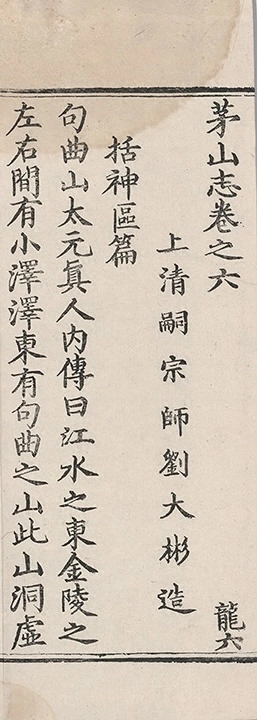 茅山志卷之六
龍六
上清嗣宗師劉大彬造
括神區篇
句曲山太元眞人內傳曰江水之東金陵之
左右間有小澤澤東有句曲之山此山洞虛